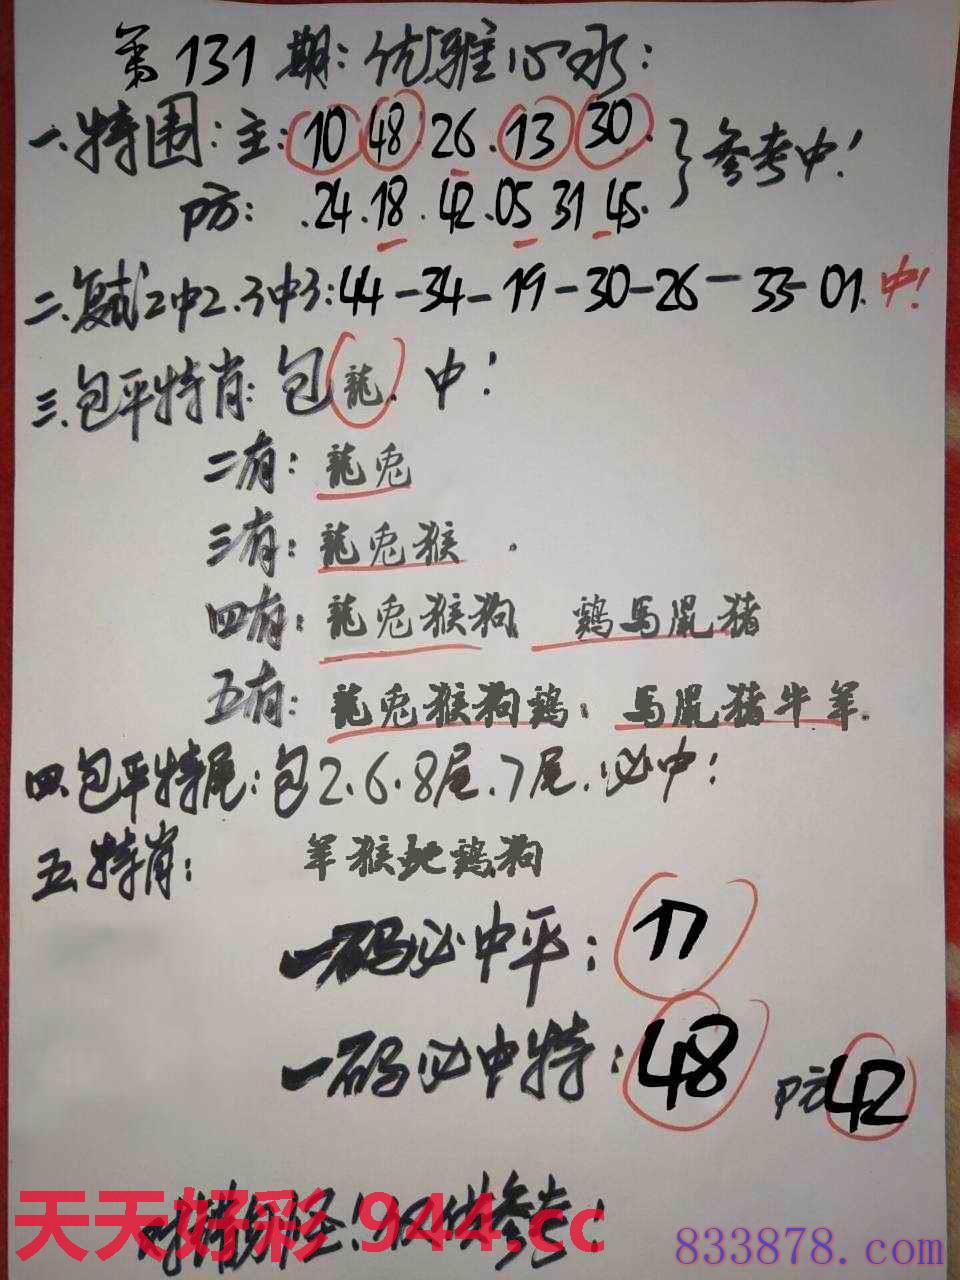 第131期:优雅心水:
一.特围:主:10 48 26.13 30.}参考中!
防:.24.18.42.05 31 45.
二.复试2中2.3中3:44-34-19-30-26-33-01.中!
三.包平特肖:包龍.中!
二有:龍兎
三有:龍兎猴.
四有:龍兎猴狗 鷄馬鼠猪
五有:龍兎猴狗鷄;馬鼠猪牛羊.
四.包平特尾:包2.6.8尾.7尾.必中!
五.特肖: 羊猴蛇鷄狗
一码必中平:17
一码必中特:48 防42
对错勿怪!仅供参考!
天天好彩 944.cc
833878.com